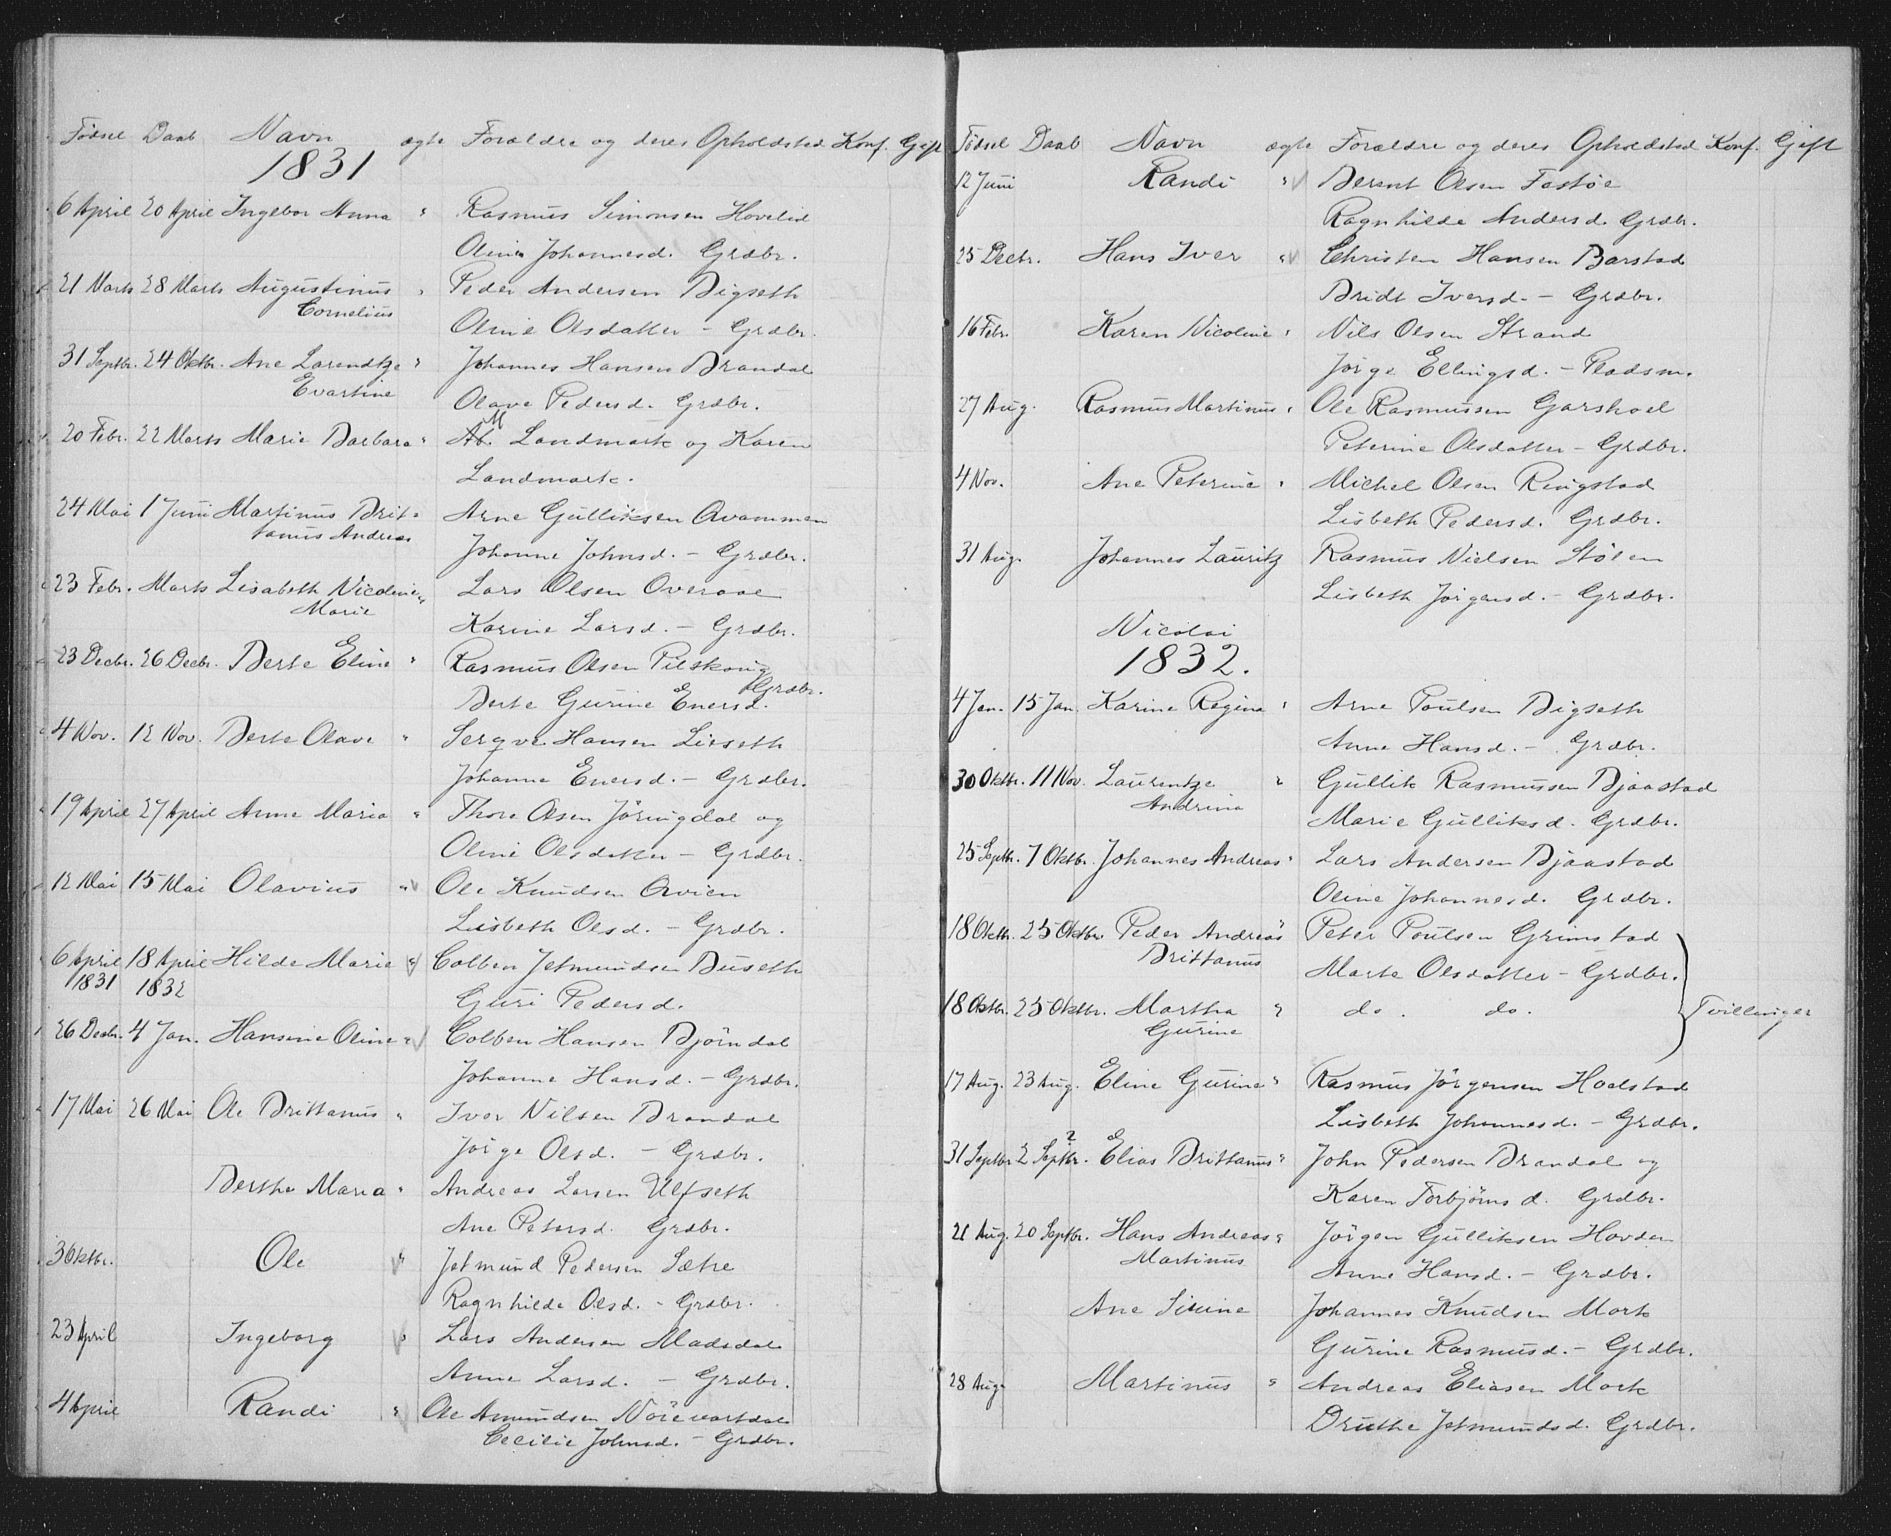 Fødsel Daab Navn ægte Forældre og deres Opholdsted Konf. Gift
1831
6 April 20 April Ingebor Anna " Rasmus Simonsen Hovelid
Oline Johannesd. Grdbr.
21 Marts 28 Marts Augustinus " Peder Andersen Digseth
Cornelius
Oline Olsdatter - Grdbr.
31 Septbr. 24 Oktbr. Ane Larendtze " Johannes Hansen Brandal
Evartine
Olave Pedersd. Grdbr.
20 Febr. 22 Marts Marie Barbara " Landmark og Karen
Landmark.
24 Mai 1 Juni Martinus Brit- " Arne Gulliksen Qvammen
tanus Andreas
Johanne Johnsd. - Grdbr.
23 Febr. Marts Lisabeth Nicoline " Lars Olsen Overaae
Marie
Karine Larsd. - Grdbr.
23 Decbr. 26 Decbr. Berte Eline " Rasmus Olsen Pilskoug
Grdbr.
Berte Gurine Enersd.
4 Nov. 12 Nov. Berte Olave " Hansen Lieseth
Johanne Enersd. - Grdbr.
19 April 27 April Anne Maria " Thore Olsen Jøringdal og
Oline Olsdatter - Grdbr.
12 Mai 15 Mai Olavius " Ole Knudsen Qvien
Lisbeth Olsd. - Grdbr.
6 April 18 April Hilde Marie " Colben Jetmundsen Buseth
1831 1832
Guri Pedersd.
26 Decbr. 4 Jan. Hansine Oline " Colben Hansen Bjørndal
Johanne Hansd. - Grdbr.
17 Mai 26 Mai Ole Brittanus " Iver Nilsen Brandal
Jørge Olsd. - Grdbr.
Berthe Maria " Andreas Larsen Ulfseth
Ane Petersd. Grdbr.
3 Oktbr. Ole " Jetmund Pedersen Sætre
Ragnhilde Olsd. - Grdbr.
23 April Ingeborg " Lars Andersen Madsdal
Anne Larsd. - Grdbr.
4 April Randi " Ole Amundsen Nørevartdal
Cecilie Johnsd. - Grdbr.
Fødsel Daab Navn ægte Forældre og deres Opholdsted Konf. Gift
12 Juni Randi " Berent Olsen Festøe
Ragnhilde Andersd. Grdbr.
25 Decbr. Hans Iver " Christen Hansen Barstad
Bridt Iversd. - Grdbr.
16 Febr. Karen Nicoline " Nils Olsen Strand
Jørge Ellingsd. - Pladsm.
27 Aug. Rasmus Martinus " Ole Rasmussen Garshoel
Peterine Olsdatter - Grdbr.
4 Nov. Ane Peterine " Michel Olsen Ringstad
Lisbeth Pedersd. Grdbr.
31 Aug. Johannes Lauritz Rasmus Nielsen Støten
Lisbeth Jørgensd. - Grdbr.
Nicolai
1832.
4 Jan. 15 Jan. Karine Regine " Arne Poulsen Digseth
Anne Hansd. - Grdbr.
30 Oktbr. 11 Nov. Laurentze " Gullik Rasmussen Bjaastad
Andrina
Marie Gulliksd. Grdbr.
25 Septbr. 7 Oktbr. Johannes Andreas " Lars Andersen Bjaastad
Oline Johannesd. Grdbr.
18 Oktbr. 25 Oktbr. Peder Andreas " Peter Poulsen Grimstad
Brittanus
Marte Olsdatter - Grdbr.
18 Oktbr. 25 Oktbr. Martha " do. do. Tvillinger
Gurine
17 Aug. 23 Aug. Eline Gurine " Rasmus Jørgensen Hoelstad
Lisbeth Johannesd. - Grdbr.
31 Septbr. 2 Septbr.? Elias Brittanus " John Pedersen Brandal og
Karen Torbjørnsd. Grdbr.
21 Aug. 20 Septbr. Hans Andreas " Jørgen Gulliksen Hovden
Martinus
Anne Hansd. - Grdbr.
Ane Sirine Johannes Knudsen Mork
Gurine Rasmusd. - Grdbr.
28 Aug. Martinus " Andreas Eliasen Mork
Druthe Jetmundsd. Grdbr.